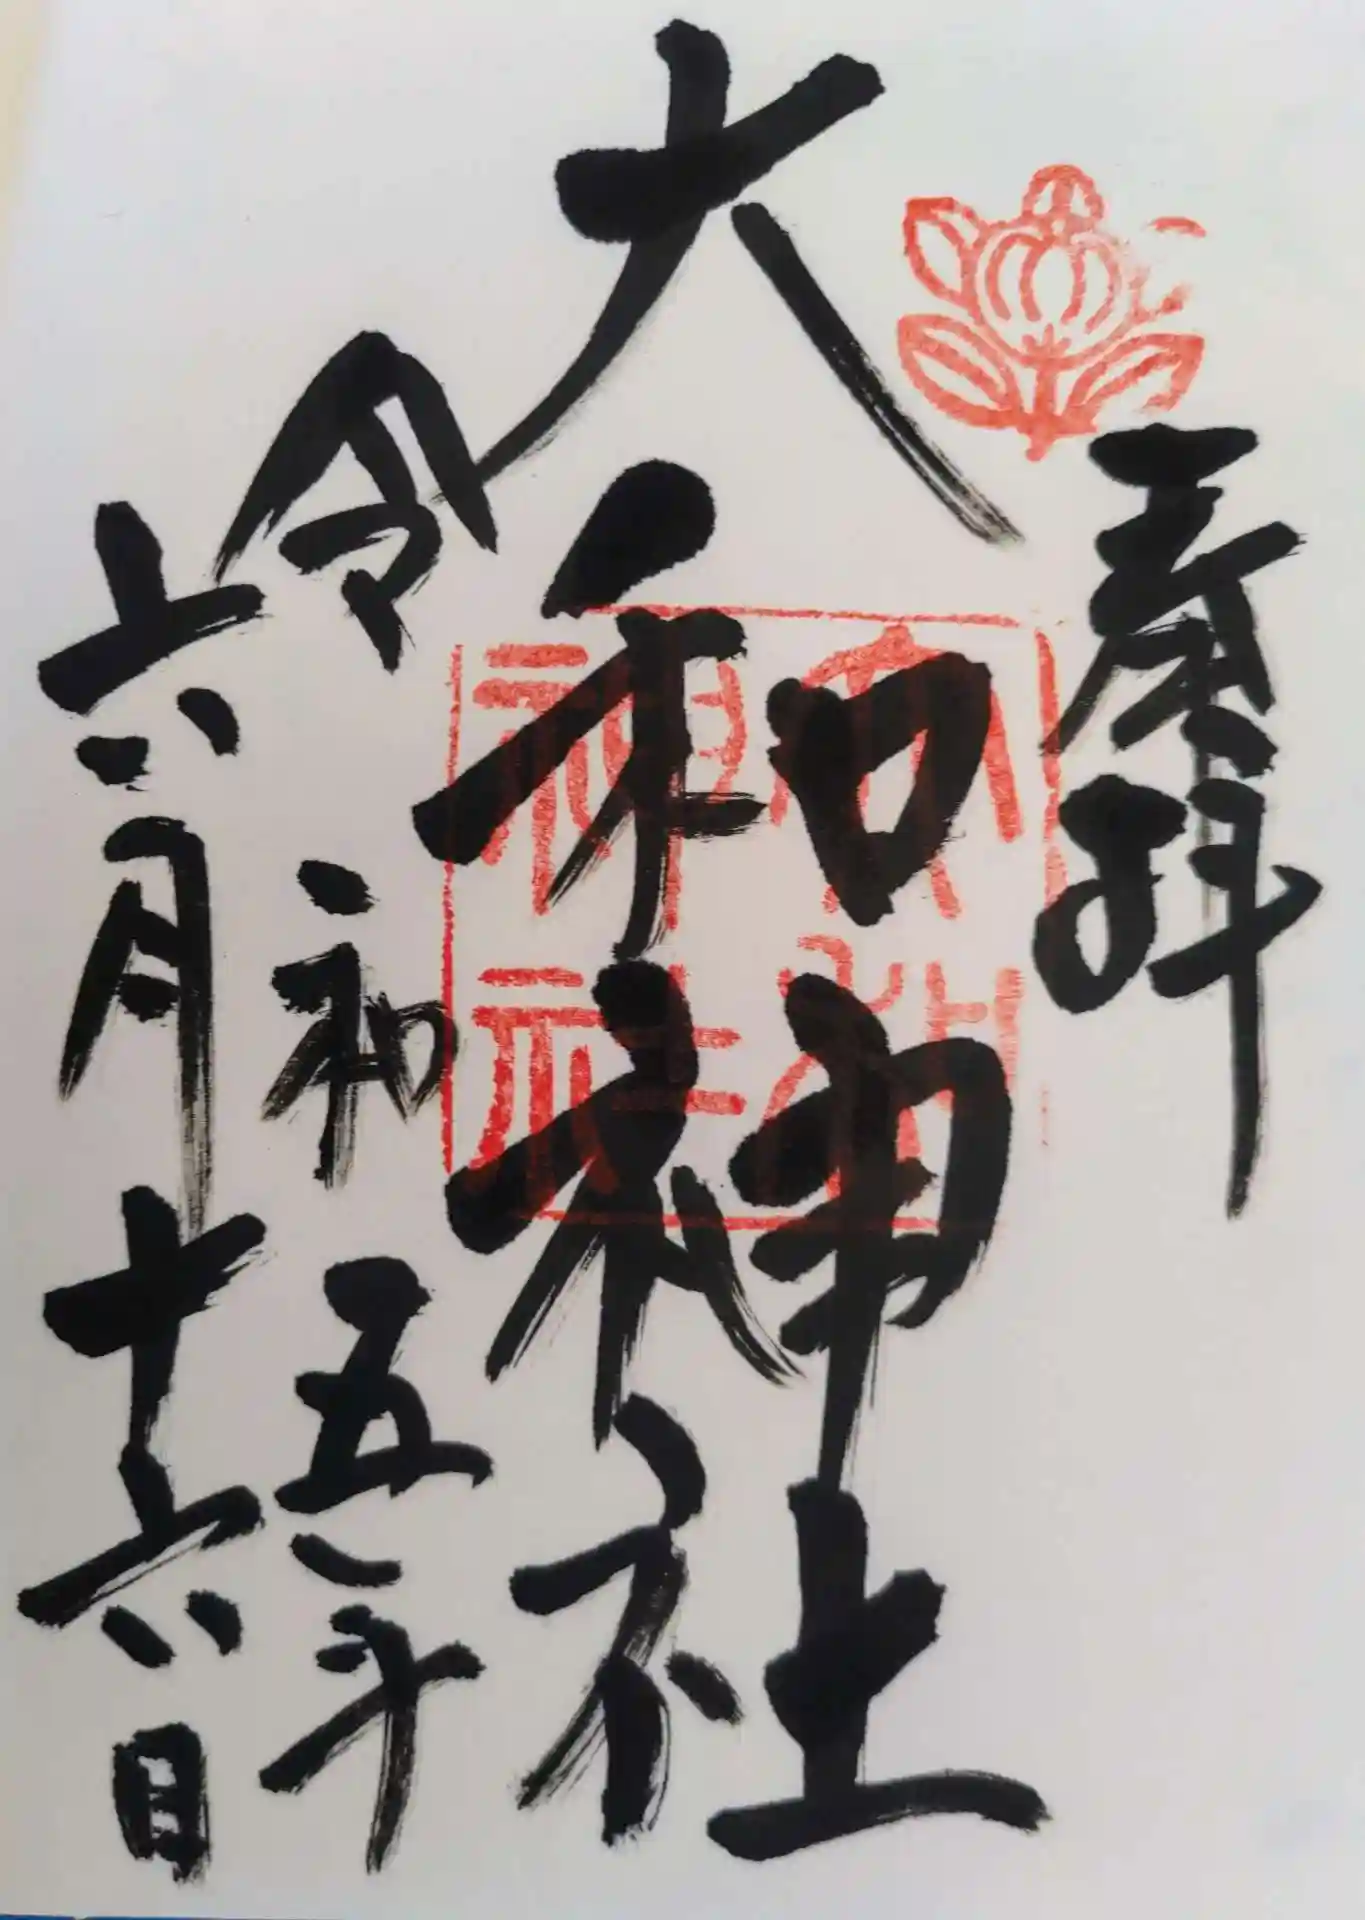 奉拝
大和神社
大和神社
令和五年
六月十六日